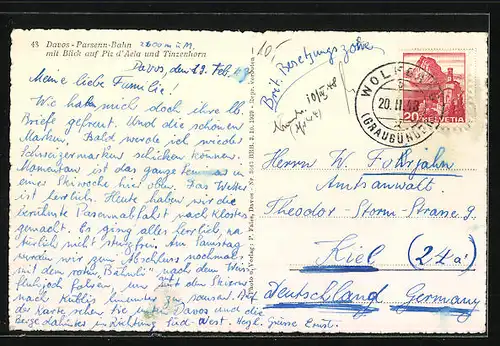 43 Davos-Parsenn-Bahn 2600 m ü. M.
mit Blick auf Piz d'Aela und Tinzenhorn
Davos, den 19. Feb. 48
Meine liebe Familie!
Wie hab mich doch ihre lb.
Briefe gefreut. Und die schönen
Marken. Bald werde ich wieder
Schweizermarken schicken können.
Momentan ist das ganze
einer Skiwoche hier oben. Das Wetter
ist herrlich. Heute haben wir die
berühmte Parsennabfahrt nach Klosters
gemacht. Es ging alles herrlich, na-
türlich nicht sturzfrei. Am Samstag
werden wir zum Abschluss nochmals
mit dem roten "Bähnli" nach dem Weis-
fluhjoch fahren, um mit den Skiern
nach Küblis hinunter zu sausen. Auf
der Karte sehen Sie unten Davos und die
Berge dahinter in Richtung Süd-West. Hrzl. Grüsse Ernst.
10.-
Brit. Besetzungszone
WOLFGANG
20.II.48
(GRAUBÜNDEN)
20 HELVETIA
Herrn W. Fohrjahn
Amtsanwalt.
Theodor Storm-Strasse 9
Kiel (24a)
Deutschland Germany